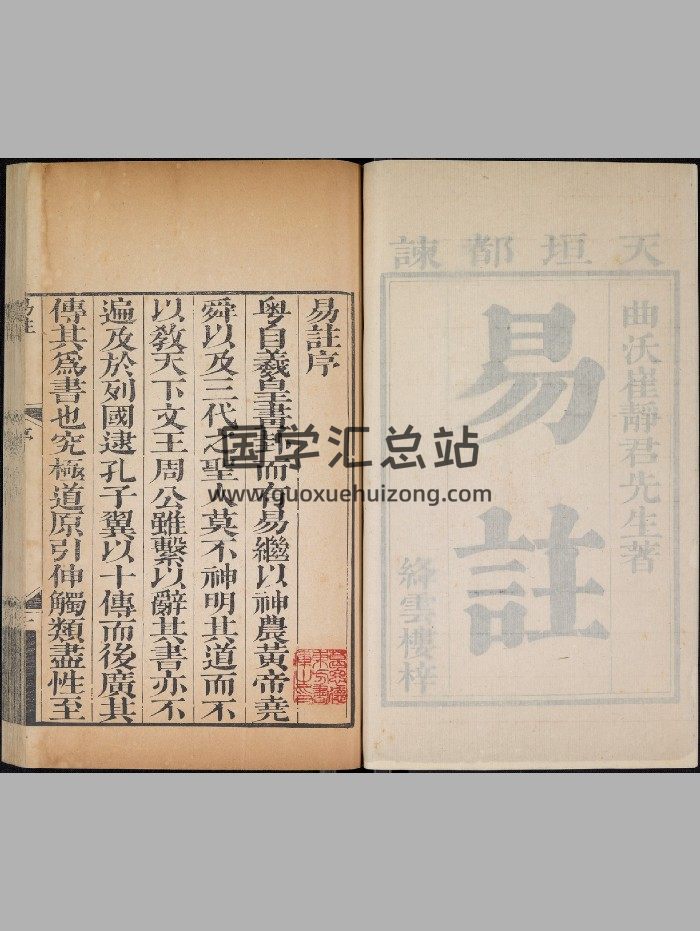 天垣都諫
曲沃崔靜君先生著
易註
絳雲樓梓
易註序
粵自羲皇畫卦而有易繼以神農黃帝堯
舜以及三代之聖人莫不神明其道而不
以敎天下文王周公雖繫以辭其書亦不
遍及於列國逮孔子翼以十傳而後廣其
傳其爲書也究極道原引伸觸類盡性至
易註
序
国学汇总站
www.guoxuehuizong.com